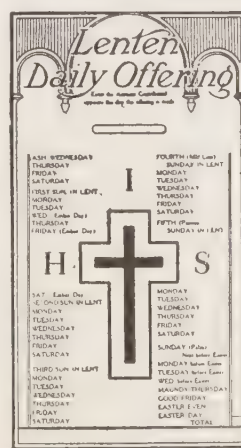 Lenten
Daily Offering
Enter the Amount Contributed
opposite the day the offering is made
ASH WEDNESDAY
THURSDAY
FRIDAY
SATURDAY
FIRST SUN. IN LENT
MONDAY
TUESDAY
WED (Ember Day)
THURSDAY
FRIDAY (Ember Day)
SAT Ember Day
SECOND SUN IN LENT
MONDAY
TUESDAY
WEDNESDAY
THURSDAY
FRIDAY
SATURDAY
THIRD SUN IN LENT
MONDAY
TUESDAY
WEDNESDAY
THURSDAY
FRIDAY
SATURDAY
I
H
S
FOURTH (Mid Lent)
SUNDAY IN LENT
MONDAY
TUESDAY
WEDNESDAY
THURSDAY
FRIDAY
SATURDAY
FIFTH (Passion
SUNDAY IN LENT
MONDAY
TUESDAY
WEDNESDAY
THURSDAY
FRIDAY
SATURDAY
SUNDAY (Palm)
Next before Easter
MONDAY before Easter
TUESDAY before Easter
WED before Easter
MAUNDY THURSDAY
GOOD FRIDAY
EASTER EVEN
EASTER DAY
TOTAL